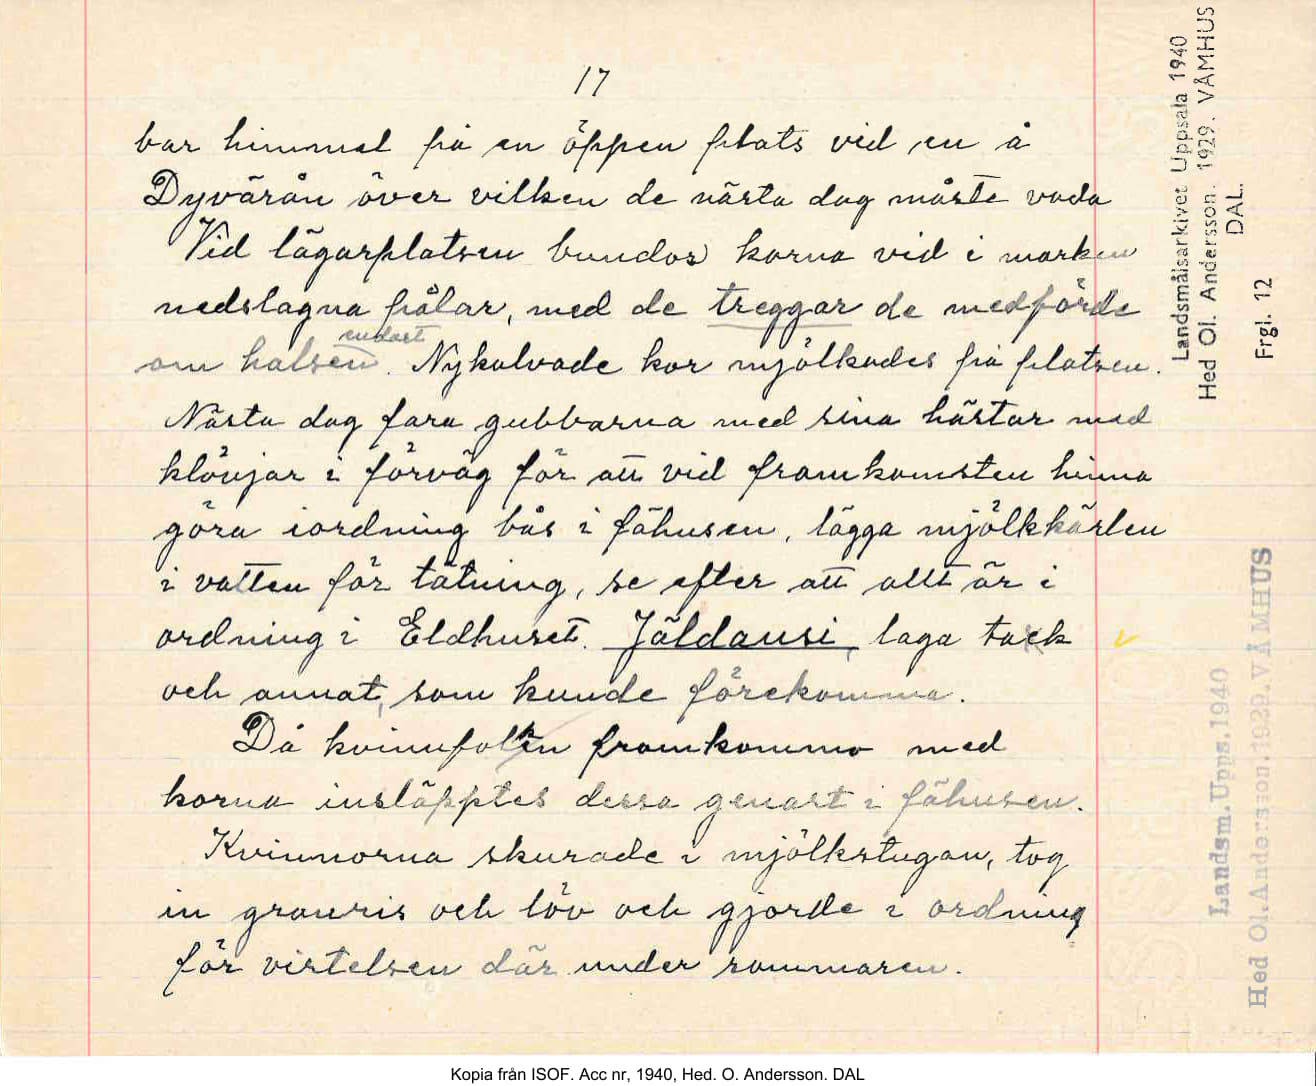 17
bar himmel på en öppen plats vid en å
Dyvärån över vilken de nästa dag måste vada
Vid lägerplatsen bundos korna vid i marken
nedslagna pålar, med de treggar de medförde
endast
om halsen. Nykalvade kor mjölkades på platsen.
Nästa dag fara gubbarna med sina hästar med
klövjar i förväg för att vid framkomsten hinna
göra iordning bås i fähusen, lägga mjölkkärlen
i vatten för tätning, se efter att allt är i
ordning i Eldhuset. Jäldausi, laga tack
och annat, som kunde förekomma.
Då kvinnfolken framkommo med
korna insläpptes dessa genast i fähusen.
Kvinnorna skurade i mjölkstugan, tog
in granris och löv och gjorde i ordning
för vistelsen där under sommaren.
Landsmålsarkivet Uppsala 1940
Hed Ol. Andersson. 1929. VÅMHUS
DAL.
Frgl. 12
Landsm. Upps. 1940
Hed Ol. Andersson. 1929. VÅMHUS
Kopia från ISOF. Acc nr, 1940, Hed. O. Andersson. DAL